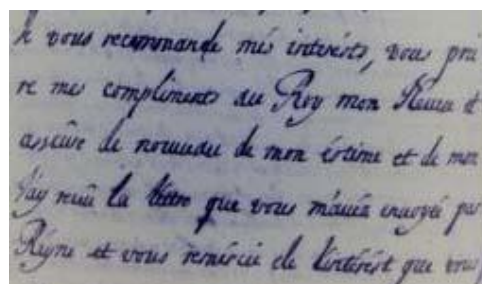 vous recommande mes interésts, vous pri
re mes compliments au Roy mon Neveu et
asseüre de nouueau de mon éstime et de mon
J'ay reçeu la lettre que vous m'aués enuoyé par
Reyne et vous remércie de l'intérést que vous